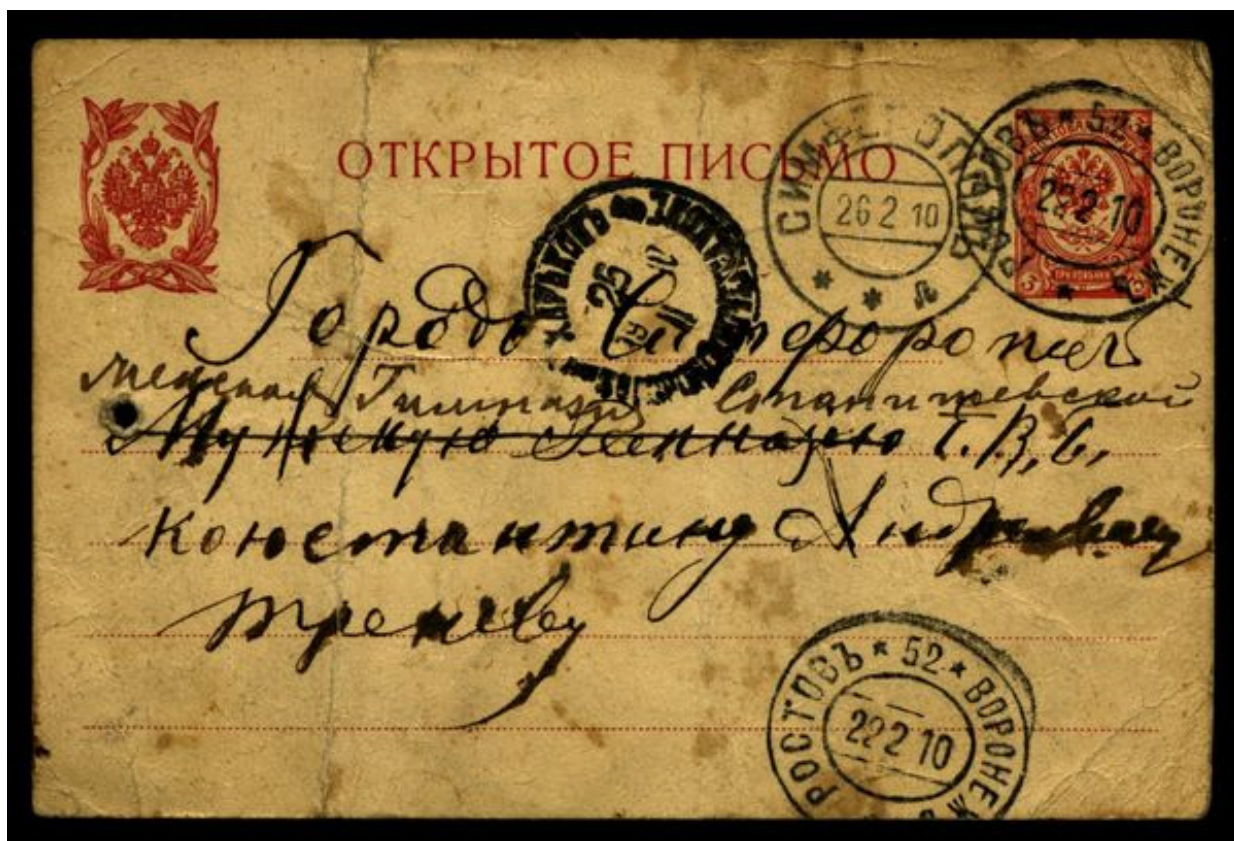 ОТКРЫТОЕ ПИСЬМО
СИМФЕРОПОЛЬ
26 2 10
РОСТОВЪ * 52 * ВОРОНЕЖ
22 2 10
25
Городъ Симферополь
Женская Гимназія Станишевской
Мужскую Гемназею Г.В.С.
Коюстантину Андреевичу
Треневу
РОСТОВЪ * 52 * ВОРОНЕЖ
22 2 10